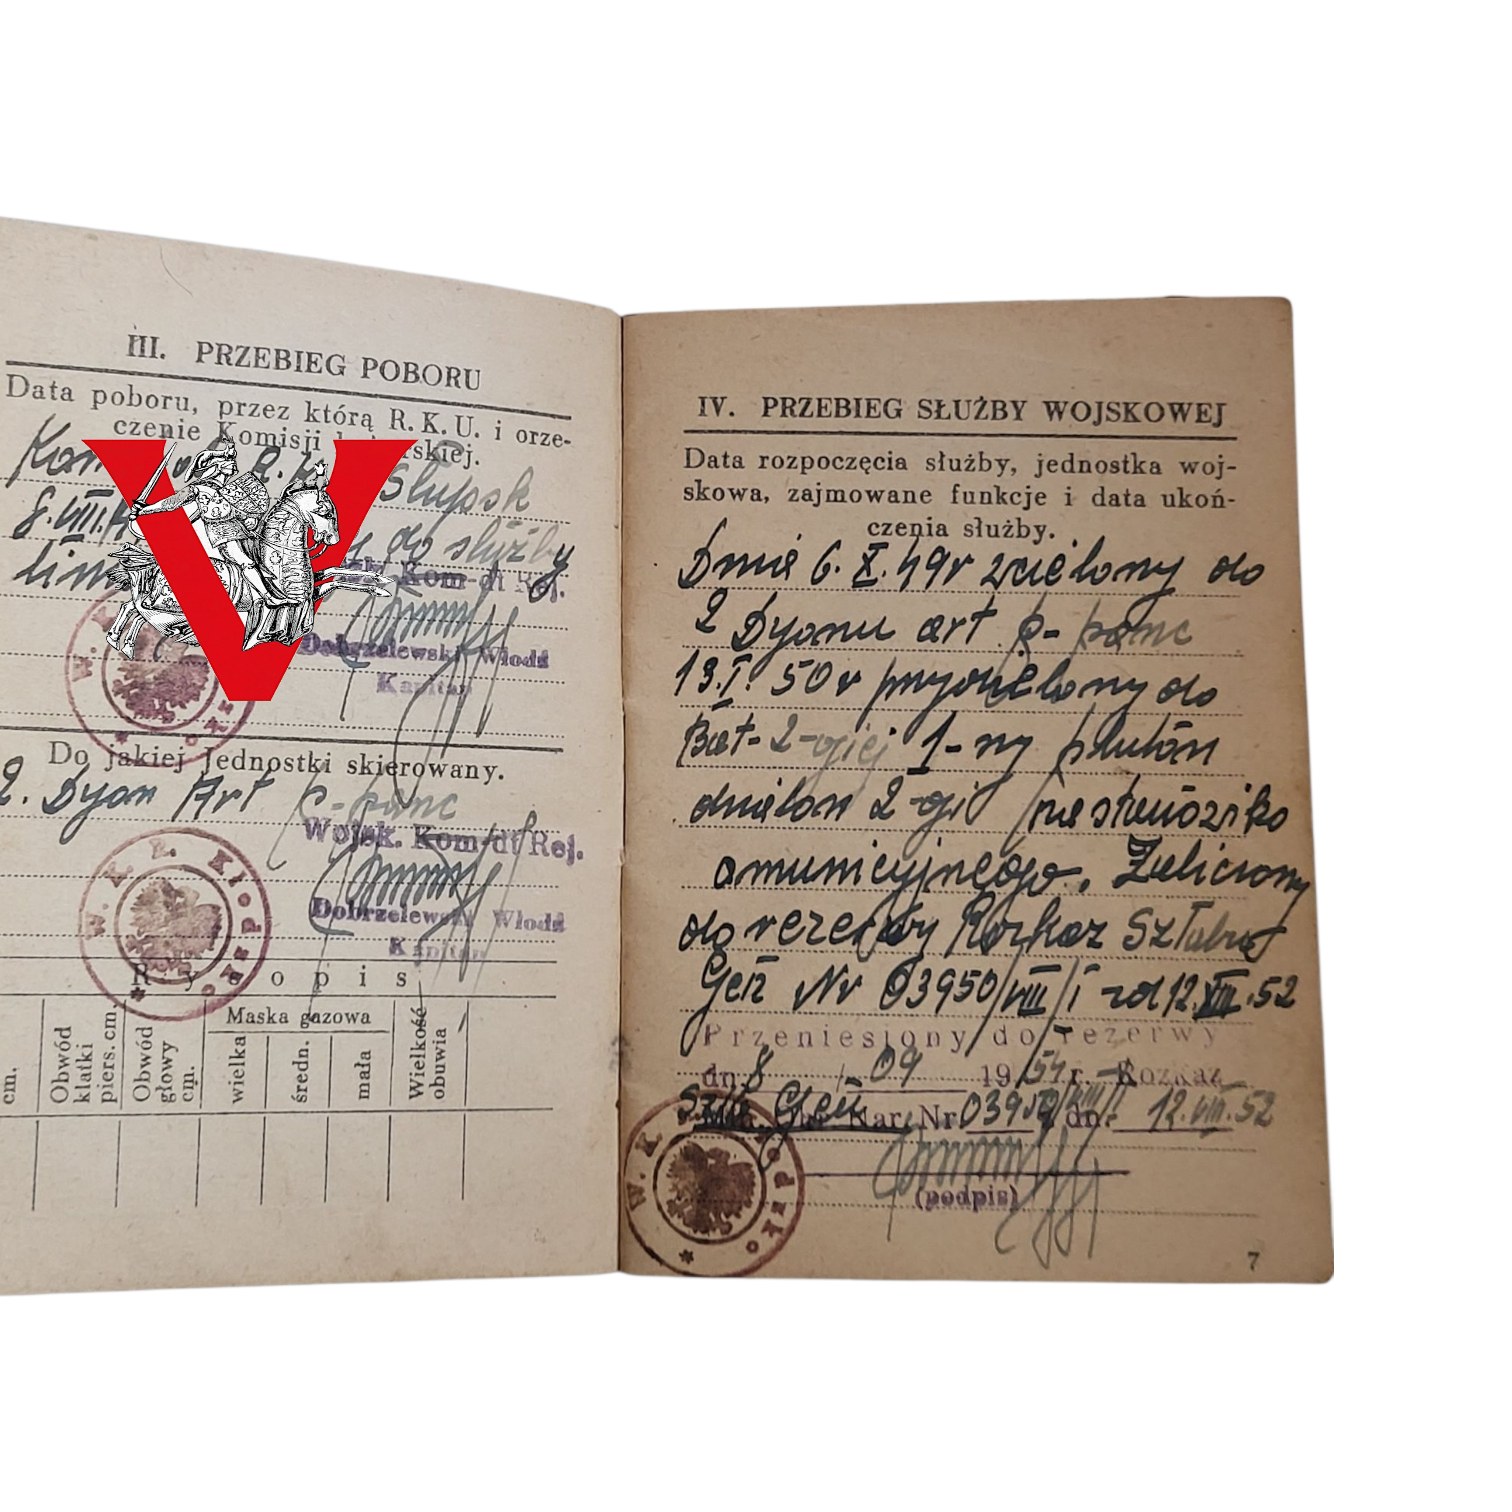 III. PRZEBIEG POBORU
Data poboru, przez którą R. K. U. i orze-
czenie Komisji
Słupsk
8. VIII.
do służby
Kom-dt Rej.
Dobrzelewski Włodz
Kapitan
W. K. R.
Do jakiej Jednostki skierowany.
2. Dyon Art p-panc
Wojsk. Kom-dt Rej.
Dobrzelewski Włodz
Kapitan
W. K. R. Kłodzko
Rysopis
cm.
Obwód klatki piers. cm.
Obwód głowy cm.
Maska gazowa
wielka
średn.
mała
Wielkość obuwia
V
IV. PRZEBIEG SŁUŻBY WOJSKOWEJ
Data rozpoczęcia służby, jednostka woj-
skowa, zajmowane funkcje i data ukoń-
czenia służby.
Dnia 6. X. 49r wcielony do
2 Dyonu art p-panc
13. I. 50r przydzielony do
Bat- 2-giej 1-ny pluton
działon 2-gi
amunicyjnego. Zaliczony
do rezerwy Rozkaz Sztabu
Gen Nr 03950/VIII/I z d 12.VIII.52
Przeniesiony do rezerwy
dn 8 09 1954 r. - Rozkaz
Sztb Gen Nr 03950/VIII/I dn. 12.VIII.52
(podpis)
W. K. R. Kłodzko
7